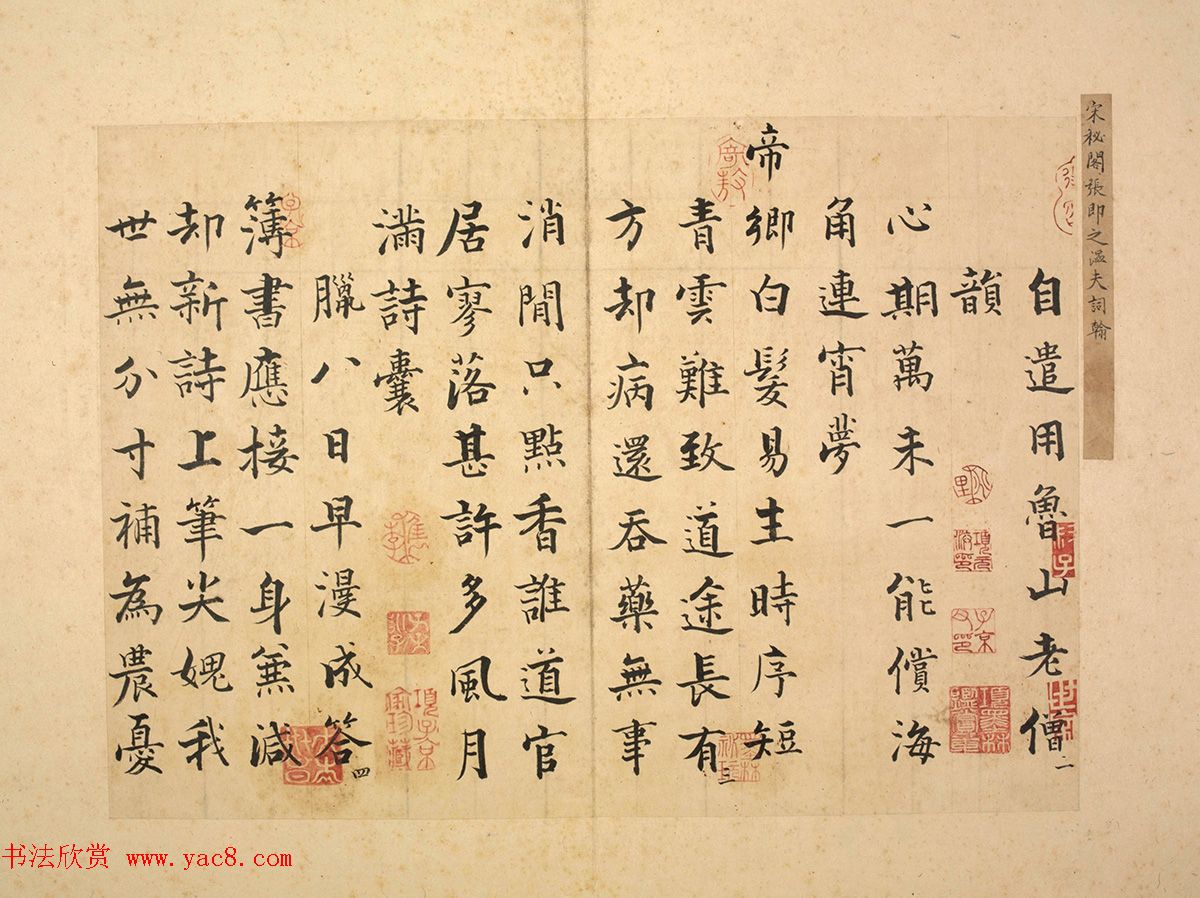 宋秘閣張即之溫夫詞翰
自遣用魯山老僧
二
韻
心期萬未一能償海
角連宵夢
帝鄉白髮易生時序短
青雲難致道途長有
二
方却病還吞藥無事
消閒只點香誰道官
居寥落甚許多風月
滿詩囊
臘八日早漫成答
四
簿書應接一身兼減
却新詩上筆尖媿我
世無分寸補為農憂
項子京家珍藏
书法欣赏 www.yac8.com